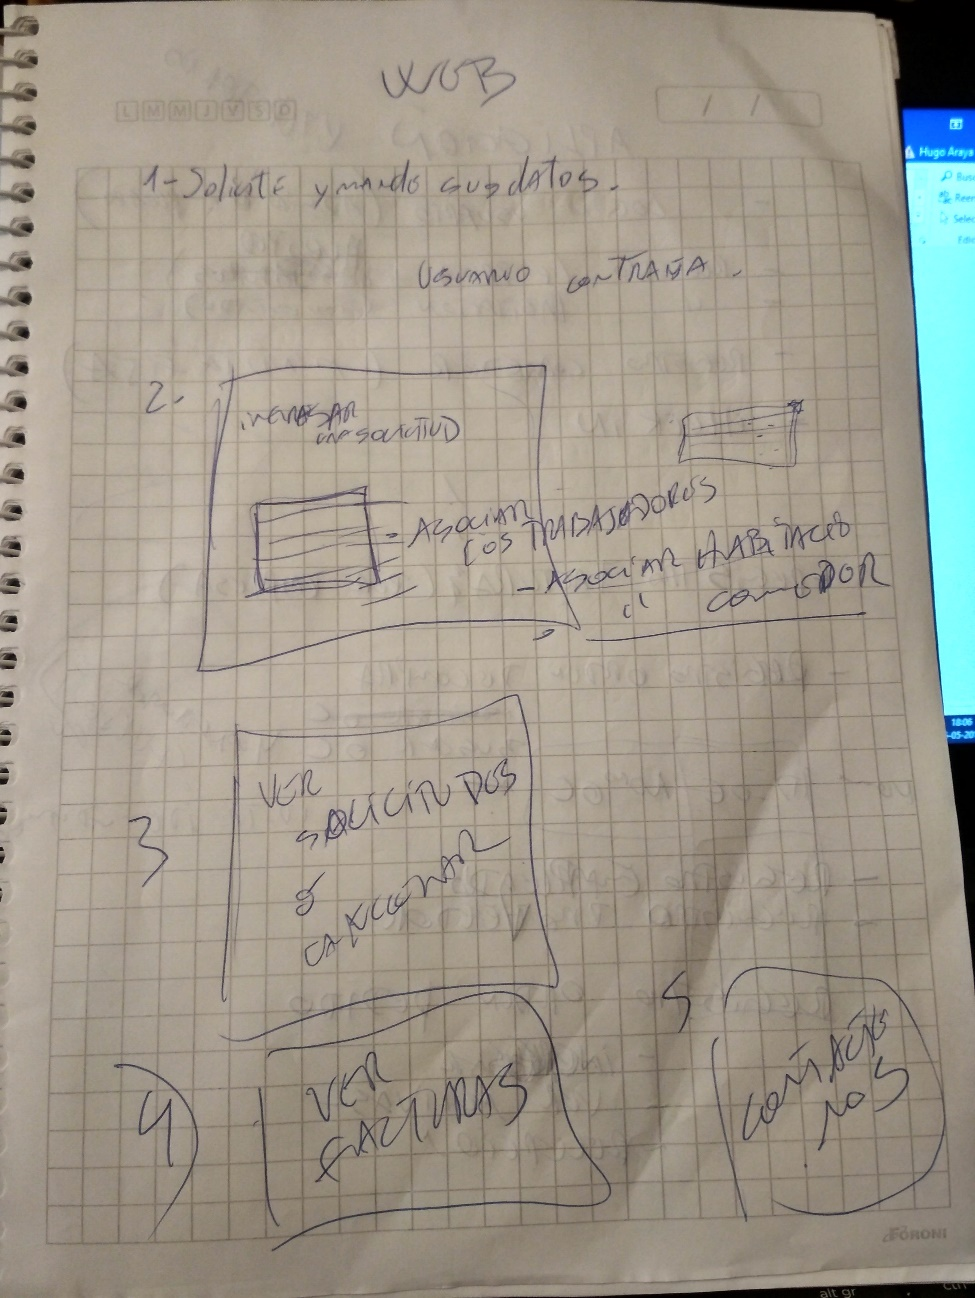 WEB
L M M J V S D
/ /
1-Solicite y mande sus datos.
USUARIO CONTRAÑA.
2.
INGRESAR
UNA SOLICITUD
- ASOCIAR
LOS TRABAJADORES
- ASOCIAR HABITACIO
COMEDOR
3
VER
SOLICITUDES
CANCELAR
4)
VER
FACTURAS
5
CONTACTE
NOS
FORONI
Hugo Araya
Selec
18:06
-05-20
alt gr
ctrl